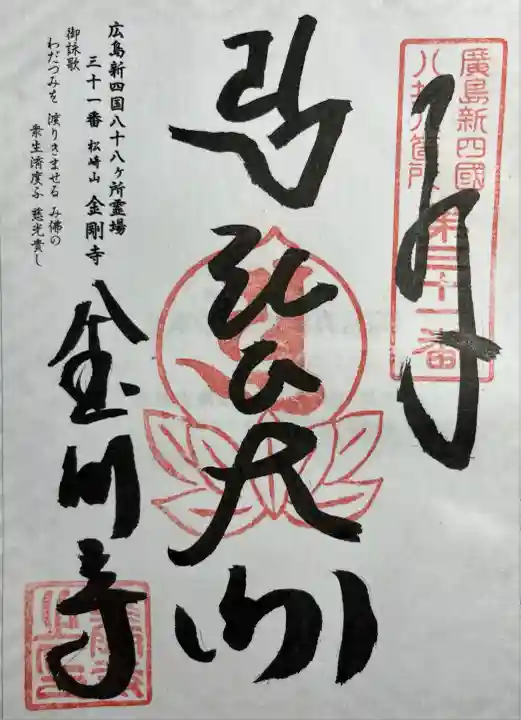 廣島新四國
八拾八箇所 第三十一番
奉拝
弘法大師
広島新四国八十八ヶ所霊場
三十一番 松崎山 金剛寺
御詠歌
わだつみを 渡りきませる み佛の
衆生済度ふ 慈光貴し
金剛寺